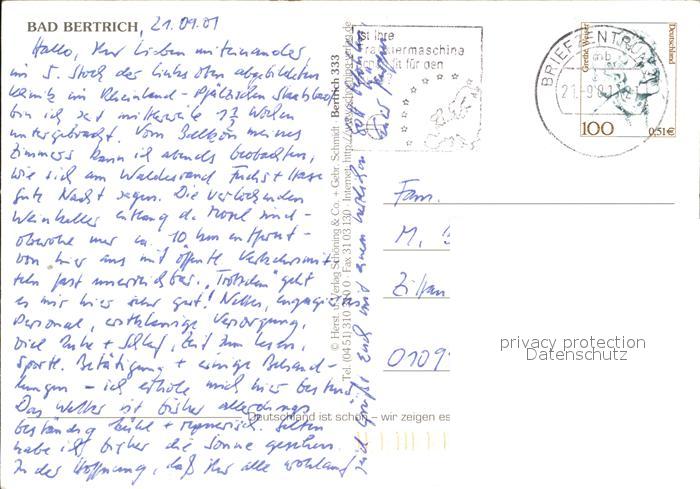 BAD BERTRICH, 21.09.01
Hallo, Ihr Lieben miteinander,
im 5. Stock der links oben abgebildeten
Klinik im Rheinland-Pfälzischen Staatsbad
bin ich seit mittlerweile 1½ Wochen
untergebracht. Vom Balkon meines
Zimmers kann ich abends beobachten,
wie sich am Waldesrand Fuchs + Hase
gute Nacht sagen. Die verlockenden
Weinkeller entlang d. Mosel sind -
obwohl nur ca. 10 km entfernt -
von hier aus mit öffentl. Verkehrsmit-
teln fast unerreichbar. "Trotzdem" geht
es mir hier sehr gut! Nettes, engagiertes
Personal, erstklassige Versorgung,
viel Ruhe + Schlaf, Zeit zum Lesen,
sportl. Betätigung + einige Behand-
lungen - ich erhole mich hier bestens.
Das Wetter ist bisher allerdings
beständig kühl + regnerisch. Selten
habe ich bisher die Sonne gesehen.
In der Hoffnung, daß ihr alle wohlauf
seid grüßt Euch mit einem herzlichen
© Herst. u. Verlag Schöning & Co. + Gebr. Schmidt Bertrich 333
Tel. (0451) 310 30 · Fax 31 03 130 Internet: http://
Ist Ihre
Frankiermaschine
schon fit für den
BRIEFZENTRUM
mb
21.-9.01
Grethe Weiser
Deutschland
100
0,51 €
Fam.
M.
Zittau
0109
privacy protection
Datenschutz
Deutschland ist schön - wir zeigen es